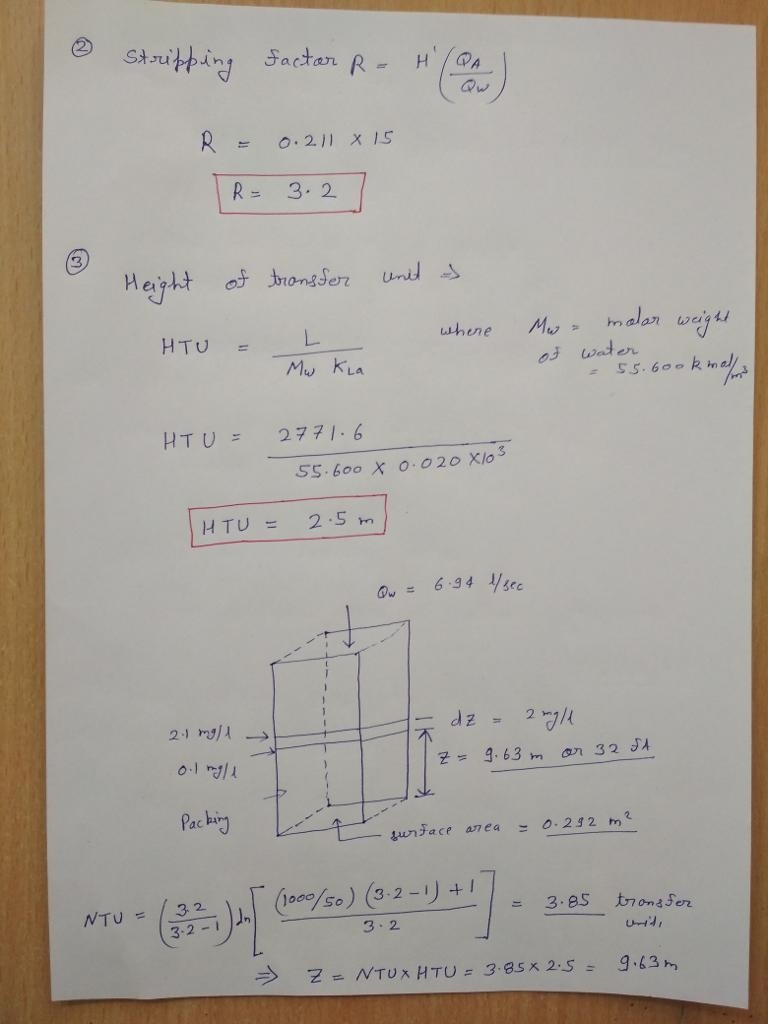 ② Stripping factor R = H' (QA / Qw)
R = 0.211 × 15
R = 3.2
③ Height of transfer unit ⇒
HTU = L / Mw KLa where Mw = molar weight
of water
= 55.600 k mol/m³
HTU = 2771.6 / 55.600 × 0.020 × 10³
HTU = 2.5 m
Qw = 6.94 l/sec
2.1 mg/l
dz = 2 mg/l
0.1 mg/l
Z = 9.63 m or 32 ft
Packing
surface area = 0.292 m²
NTU = (3.2 / 3.2 - 1) ln [(1000/50) (3.2 - 1) + 1 / 3.2] = 3.85 transfer
unit,
⇒ Z = NTU × HTU = 3.85 × 2.5 = 9.63 m